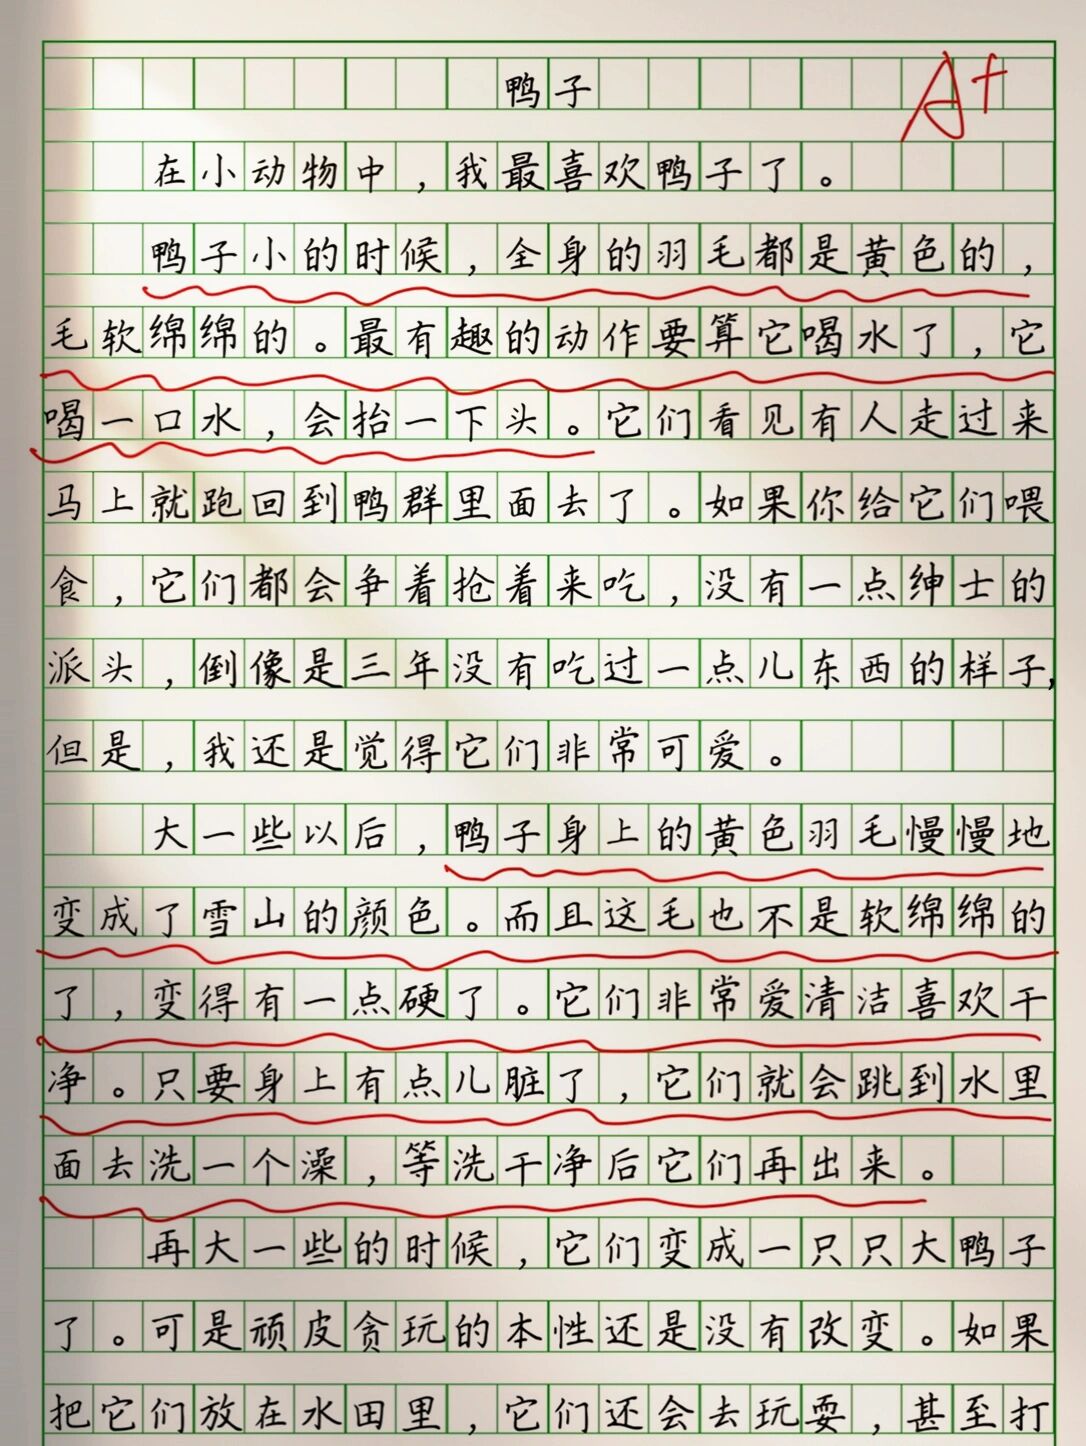 鸭子
A+
在小动物中，我最喜欢鸭子了。
鸭子小的时候，全身的羽毛都是黄色的，
毛软绵绵的。最有趣的动作要算它喝水了，它
喝一口水，会抬一下头。它们看见有人走过来
马上就跑回到鸭群里面去了。如果你给它们喂
食，它们都会争着抢着来吃，没有一点绅士的
派头，倒像是三年没有吃过一点儿东西的样子，
但是，我还是觉得它们非常可爱。
大一些以后，鸭子身上的黄色羽毛慢慢地
变成了雪山的颜色。而且这毛也不是软绵绵的
了，变得有一点硬了。它们非常爱清洁喜欢干
净。只要身上有点儿脏了，它们就会跳到水里
面去洗一个澡，等洗干净后它们再出来。
再大一些的时候，它们变成一只只大鸭子
了。可是顽皮贪玩的本性还是没有改变。如果
把它们放在水田里，它们还会去玩耍，甚至打